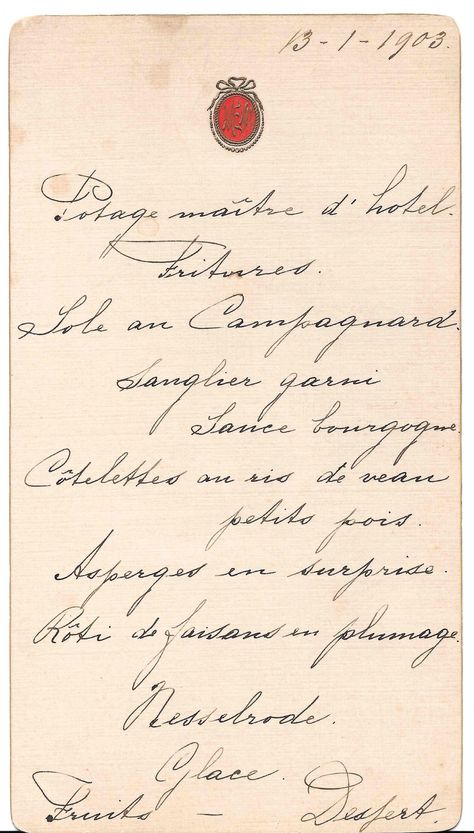 13-1-1903.
Potage maître d'hotel.
Fritures.
Sole au Campagnard.
Sanglier garni
Sauce bourgogne.
Côtelettes au ris de veau
petits pois.
Asperges en surprise.
Rôti de faisans en plumage.
Nesselrode.
Glace.
Fruits — Dessert.